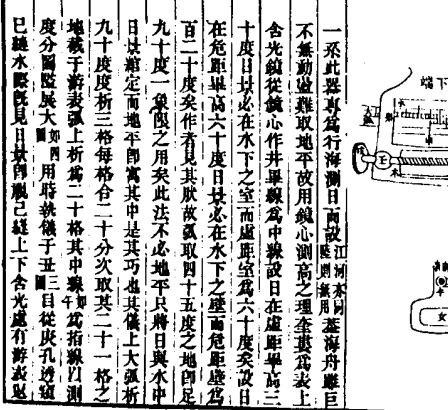 一系此器專爲行海測日而設江河亦同陸則無用蓋海舟雖巨
不無動盪難取地平故用鏡心測高之理奎婁爲表上
含光鏡從鏡心作井畢線爲中線設日在虛距畢高三
十度日景必在水下之室而虛距室爲六十度矣設日
在危距畢高六十度日景必在水下之壁而危距壁爲
百二十度矣作者見其然故弧取四十五度之地卽足
九十度一象限之用矣此法不必地平只將日與水中
日景瞄定而地平卽寓其中是其巧也其儀上大弧析
九十度度析三格每格合二十分次取其二十一格之
地載于游表弧上析爲二十格其中線如午爲指線以測
度分圖監展大如四圖用時執儀于丑三圖目從庚孔透
巳縫水際旣見日景卽觀巳縫上下含光處有游表返
下端
木
女